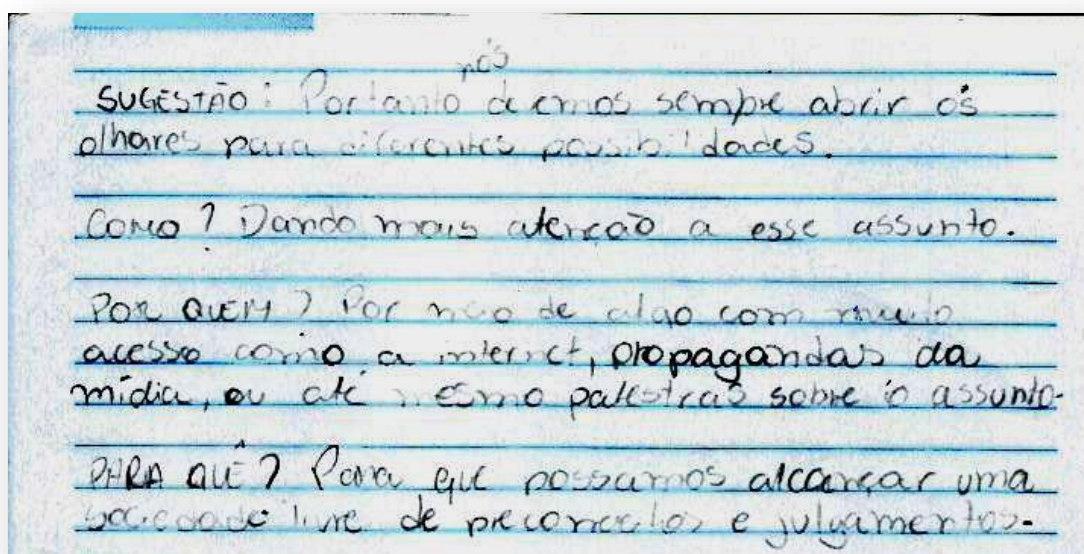 nós
SUGESTÃO: Portanto devemos sempre abrir os
olhares para diferentes possibilidades.
COMO? Dando mais atenção a esse assunto.
POR QUEM? Por meio de algo com muito
acesso como a internet, propagandas da
mídia, ou até mesmo palestras sobre o assunto.
PARA QUÊ? Para que possamos alcançar uma
sociedade livre de preconceitos e julgamentos.